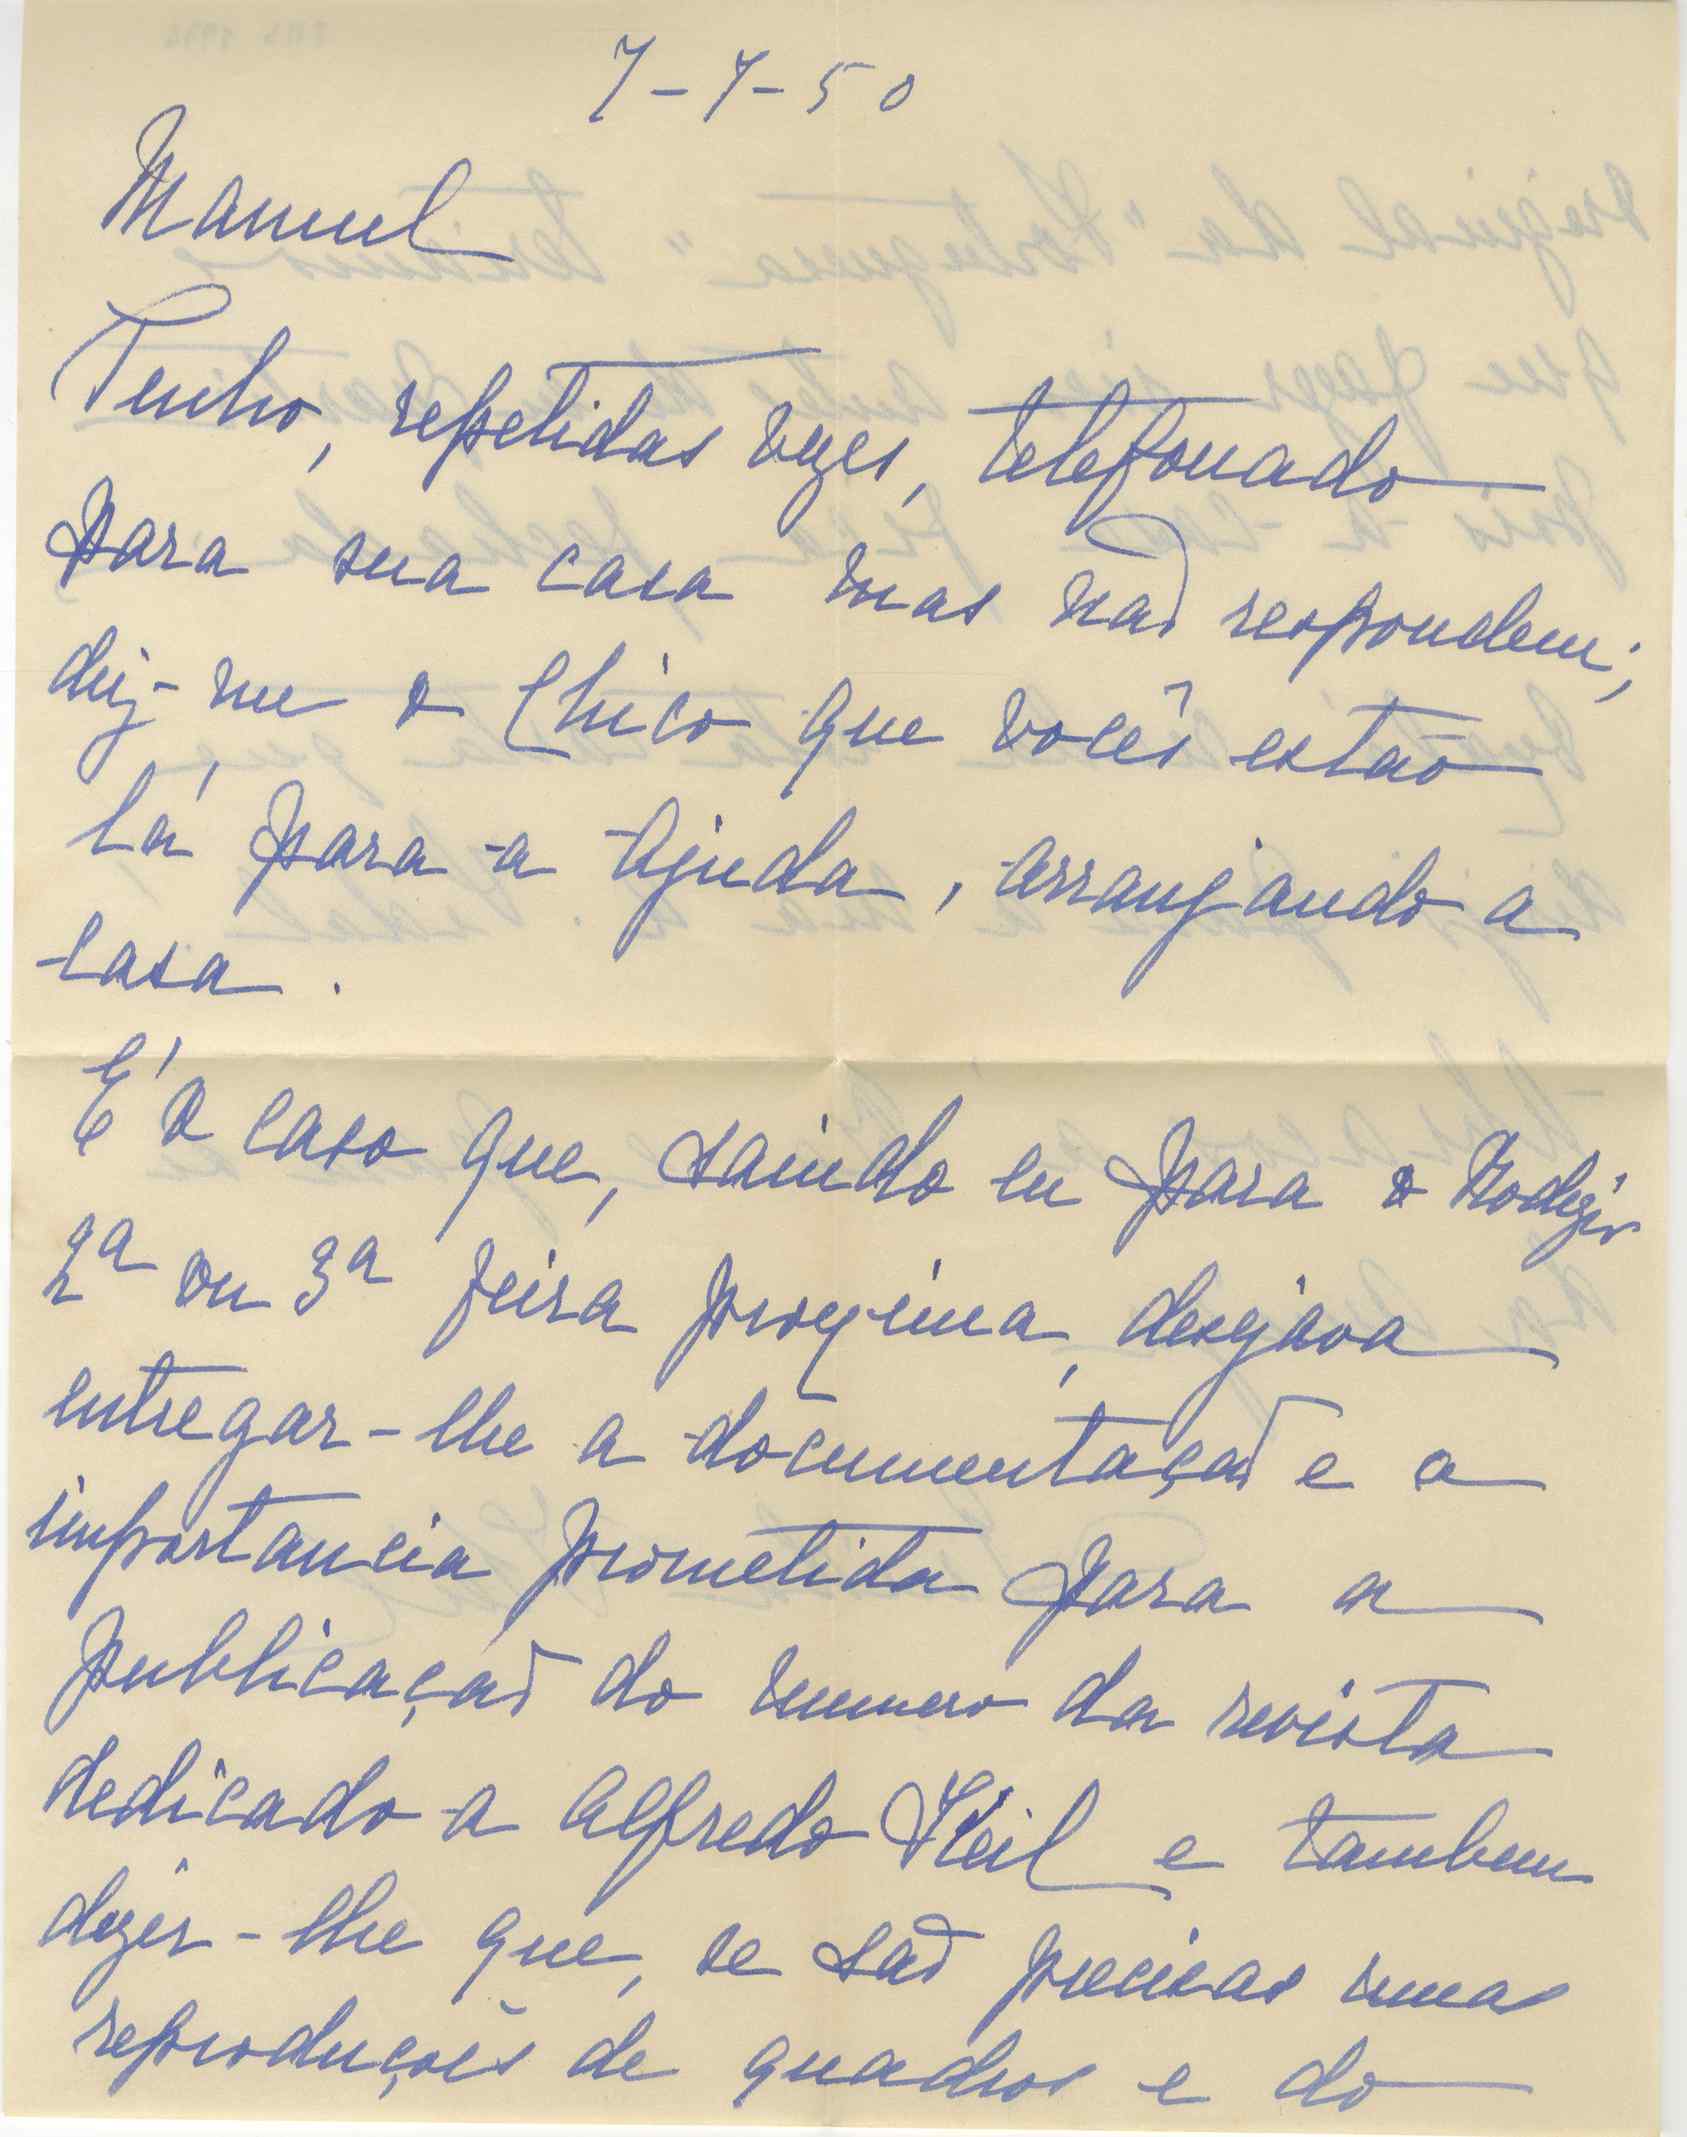 7-7-50
Manuel
Tenho, repetidas vezes, telefonado
para sua casa mas não respondem;
diz-me o Chico que vocês estão
lá para a Ajuda, arranjando a
casa.
É o caso que, saindo eu para o Rodizio
2ª ou 3ª feira proxima, desejava
entregar-lhe a documentação e a
importancia prometida para a
publicação do numero da revista
dedicado a Alfredo Keil e tambem
dizer-lhe que, se são precisas umas
reproduções de quadros e do